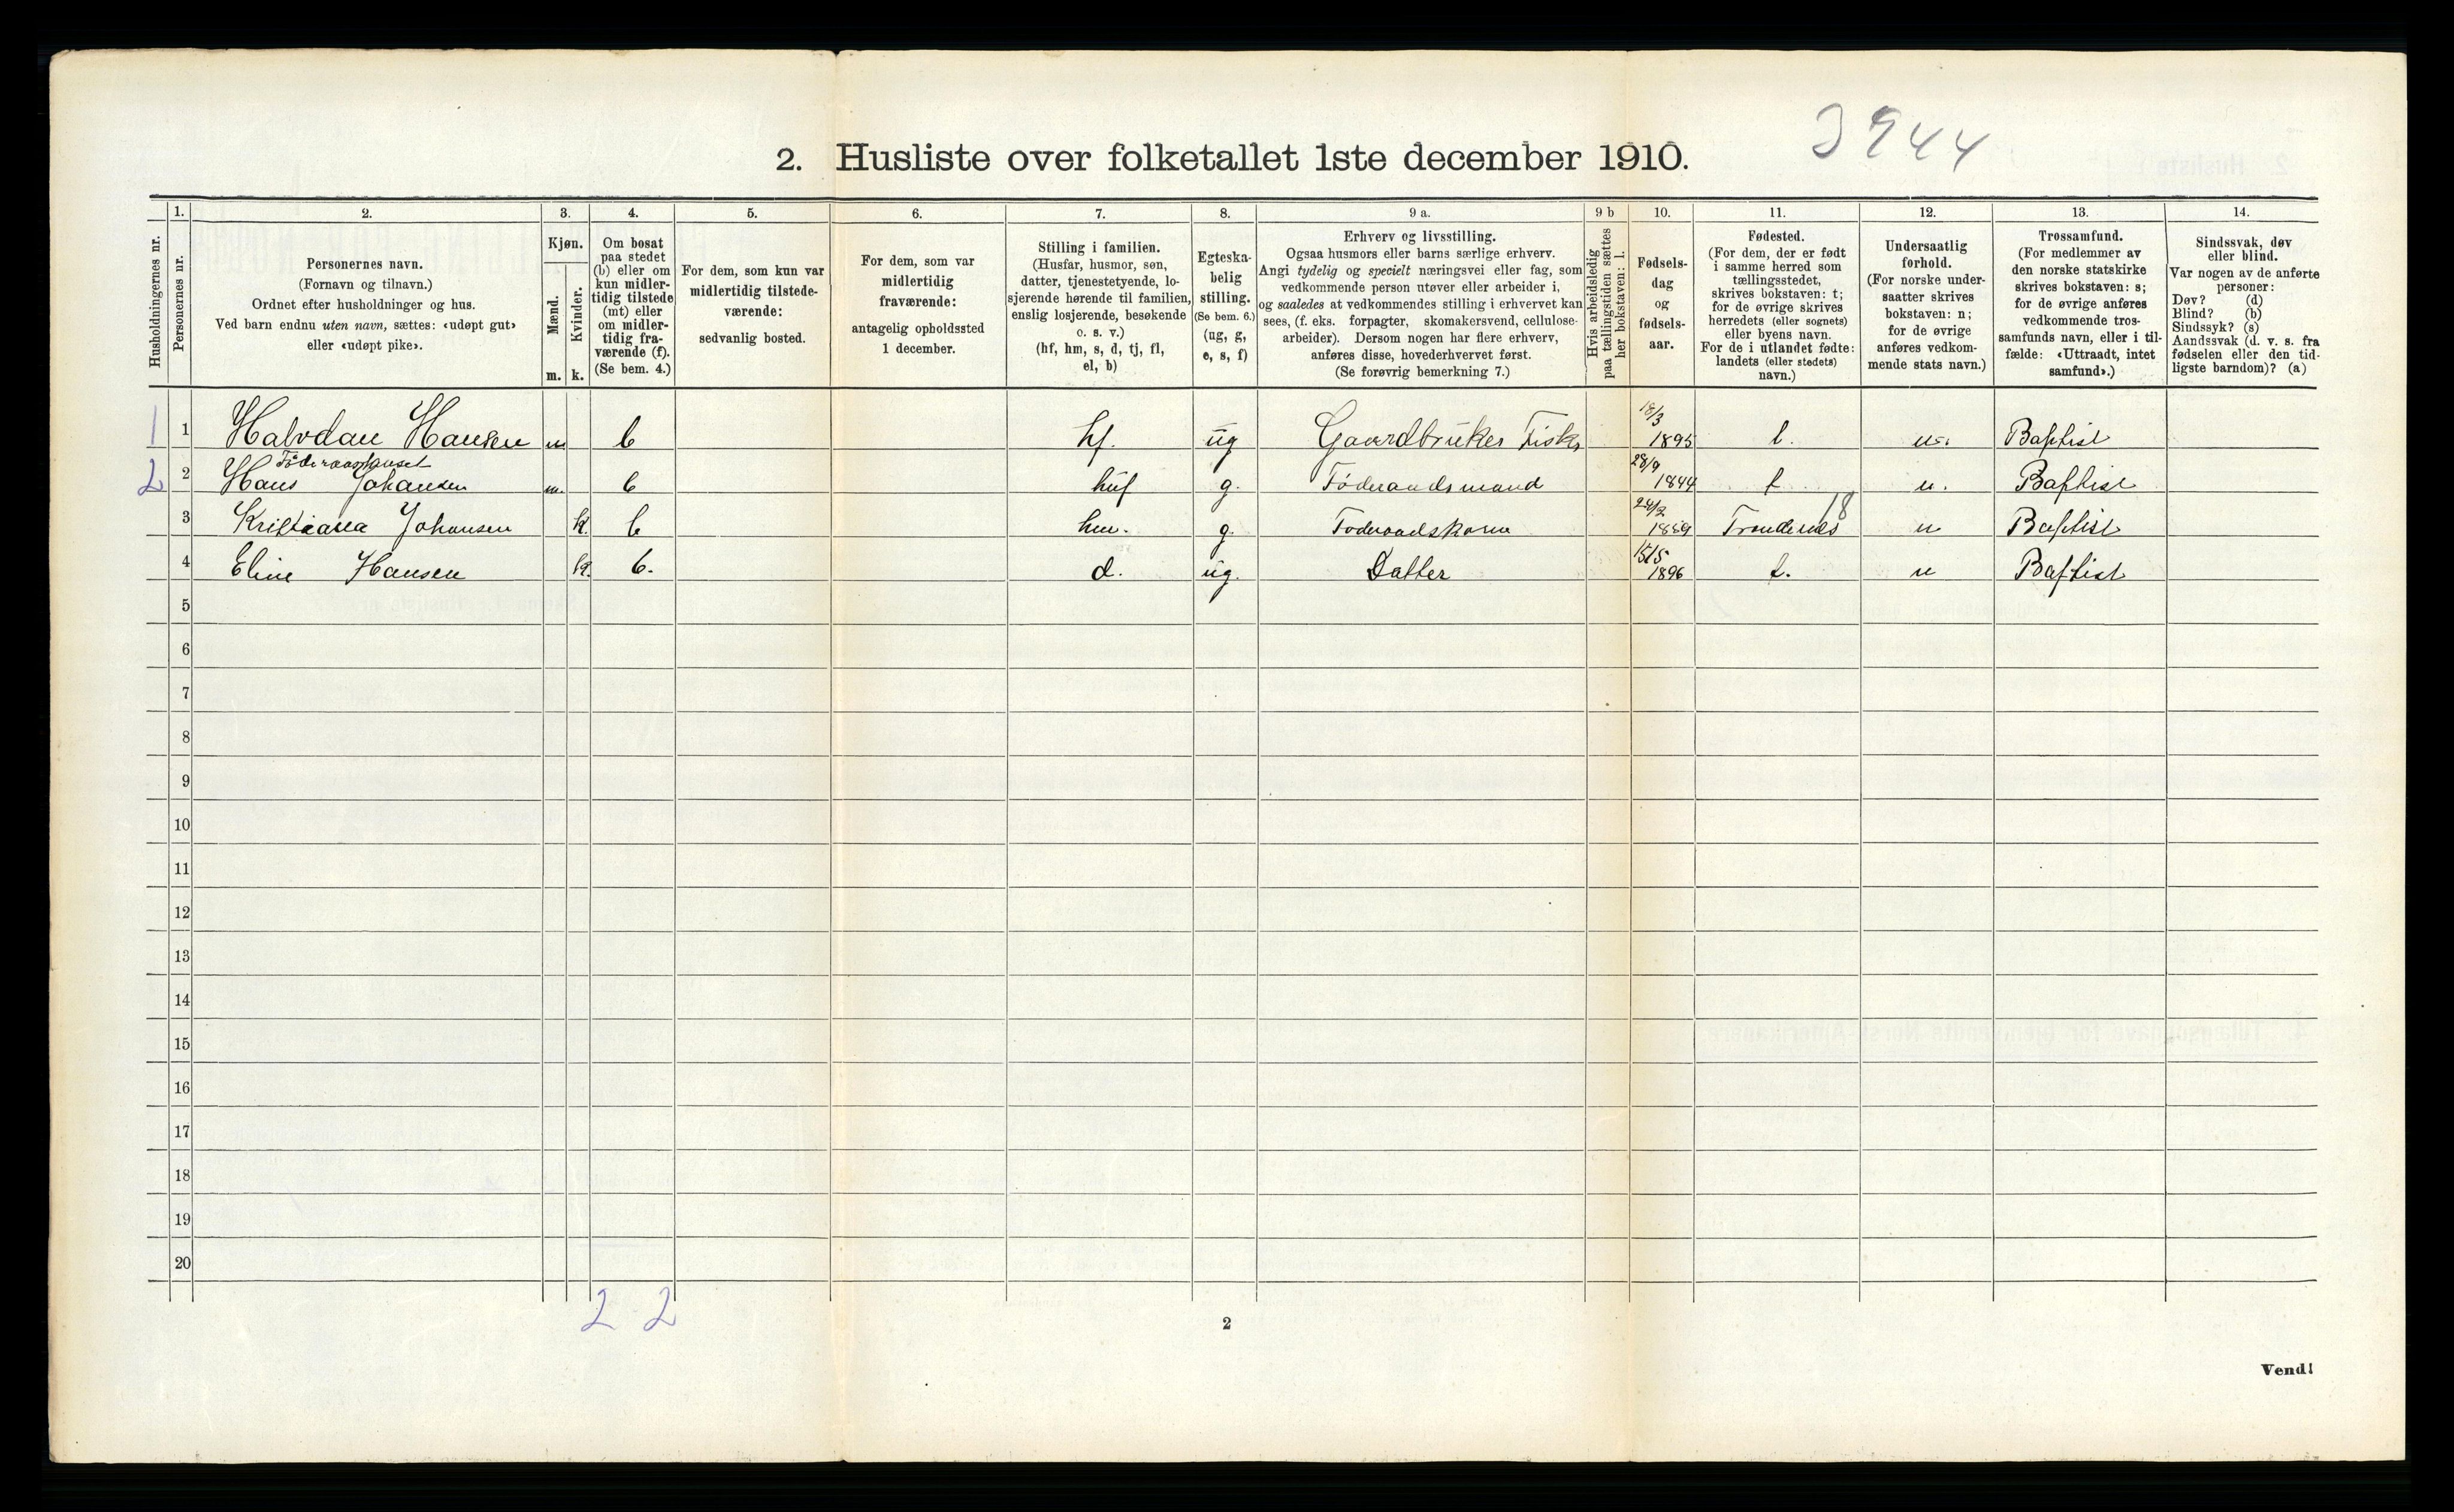 3944
2. Husliste over folketallet 1ste december 1910.
Husholdningernes nr.
1.
Personernes nr.
2.
Personernes navn.
(Fornavn og tilnavn.)
Ordnet efter husholdninger og hus.
Ved barn endnu uten navn, sættes: «udøpt gut»
eller «udøpt pike».
3.
Kjøn.
Mænd.
Kvinder.
m. k.
4.
Om bosat
paa stedet
(b) eller om
kun midler-
tidig tilstede
(mt) eller
om midler-
tidig fra-
værende (f).
(Se bem. 4.)
5.
For dem, som kun var
midlertidig tilstede-
værende:
sedvanlig bosted.
6.
For dem, som var
midlertidig
fraværende:
antagelig opholdssted
1 december.
7.
Stilling i familien.
(Husfar, husmor, søn,
datter, tjenestetyende, lo-
sjerende hørende til familien,
enslig losjerende, besøkende
o. s. v.)
(hf, hm, s, d, tj, fl,
el, b)
8.
Egteska-
belig
stilling.
(Se bem. 6.)
(ug, g,
e, s, f)
9 a.
Erhverv og livsstilling.
Ogsaa husmors eller barns særlige erhverv.
Angi tydelig og specielt næringsvei eller fag, som
vedkommende person utøver eller arbeider i,
og saaledes at vedkommendes stilling i erhvervet kan
sees, (f. eks. forpagter, skomakersvend, cellulose-
arbeider). Dersom nogen har flere erhverv,
anføres disse, hovederhvervet først.
(Se forøvrig bemerkning 7.)
9 b
Hvis arbeidsledig
paa tællingstiden sættes
her bokstaven: l.
10.
Fødsels-
dag
og
fødsels-
aar.
11.
Fødested.
(For dem, der er født
i samme herred som
tællingsstedet,
skrives bokstaven: t;
for de øvrige skrives
herredets (eller sognets)
eller byens navn.
For de i utlandet fødte:
landets (eller stedets)
navn.)
12.
Undersaatlig
forhold.
(For norske under-
saatter skrives
bokstaven: n;
for de øvrige
anføres vedkom-
mende stats navn.)
13.
Trossamfund.
(For medlemmer av
den norske statskirke
skrives bokstaven: s;
for de øvrige anføres
vedkommende tros-
samfunds navn, eller i til-
fælde: «Uttraadt, intet
samfund».)
14.
Sindssvak, døv
eller blind.
Var nogen av de anførte
personer:
Døv? (d)
Blind? (b)
Sindssyk? (s)
Aandssvak (d. v. s. fra
fødselen eller den tid-
ligste barndom)? (a)
1 1 Halvdan Hansen m b hf. ug Gaardbruker Fisker 18/3 1895 t. n. Baptist
Föderaadshuset
2 2 Hans Johansen m. b huf g. Föderaadsmand 28/9 1844 t n. Baptist
3 Kristiana Johansen k. b hm. g. Foderaadskone 24/2 1859 Trondenes 18 n Baptist
4 Eline Hansen k. b. d. ug. Datter 15/5 1896 t. n Baptist
5
6
7
8
9
10
11
12
13
14
15
16
17
18
19
20
2 2
2
Vend!